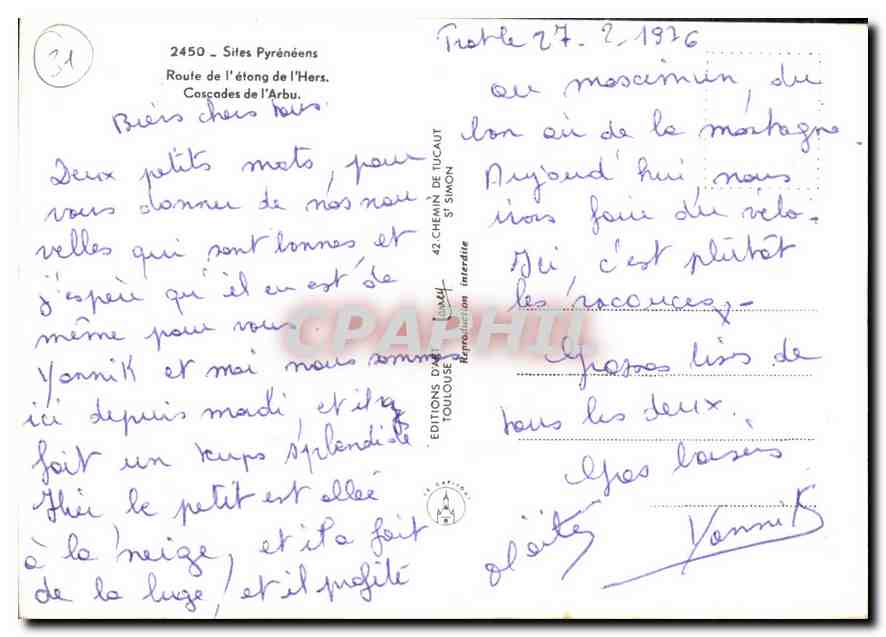 31
2450 _ Sites Pyrénéens
Route de l'étang de l'Hers.
Cascades de l'Arbu.
Biens chers tous
Deux petits mots, pour
vous donner de nos nou-
velles qui sont bonnes et
j'espère qu'il en est de
même pour vous
Yannik et moi nous sommes
ici depuis mardi, et il y
fait un temps splendide
Hier le petit est allée
à la neige, et il a fait
de la luge, et il profite
27. 2. 1976
au maximun, du
bon air de la montagne
Aujourd'hui, nous
irons faire du vélo.
Ici, c'est plûtôt
les vacances,-
Grosses bises de
tous les deux.
Gros baisers
Yannik
EDITIONS D'ART Larrey
TOULOUSE
42, CHEMIN DE TUCAUT
St SIMON
Reproduction interdite
LE CAPITOLE
CPAPHIL